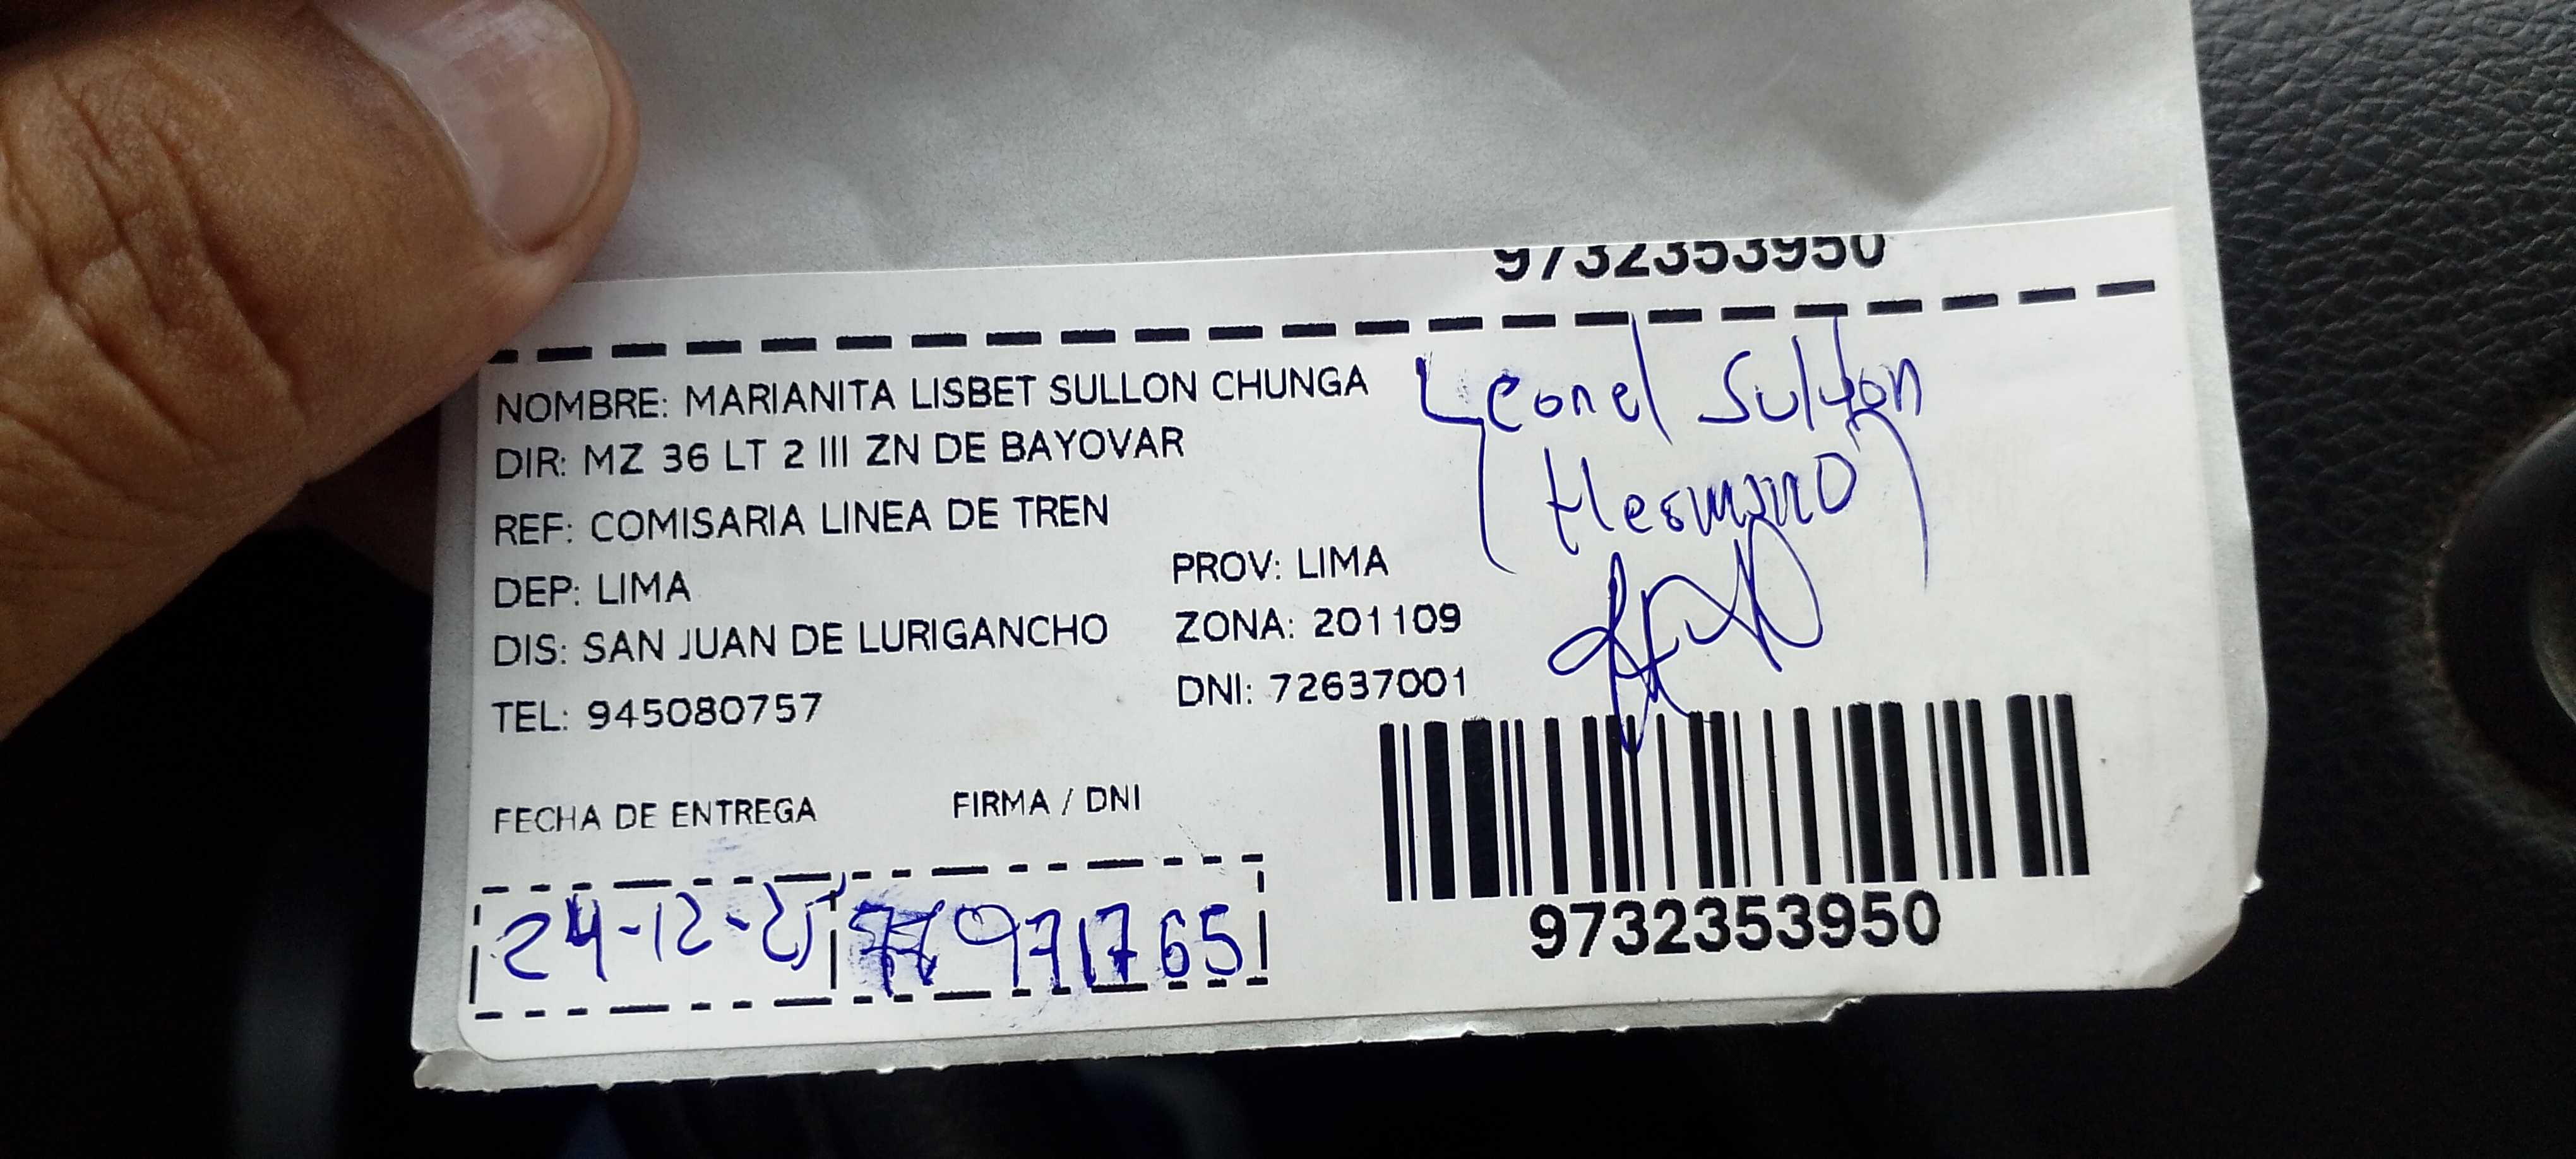 9732353950
NOMBRE: MARIANITA LISBET SULLON CHUNGA
Leonel Sullon
DIR: MZ 36 LT 2 III ZN DE BAYOVAR
(Hermano)
REF: COMISARIA LINEA DE TREN
DEP: LIMA
PROV: LIMA
DIS: SAN JUAN DE LURIGANCHO
ZONA: 201109
TEL: 945080757
DNI: 72637001
FECHA DE ENTREGA
FIRMA / DNI
24-12-25
9732353950